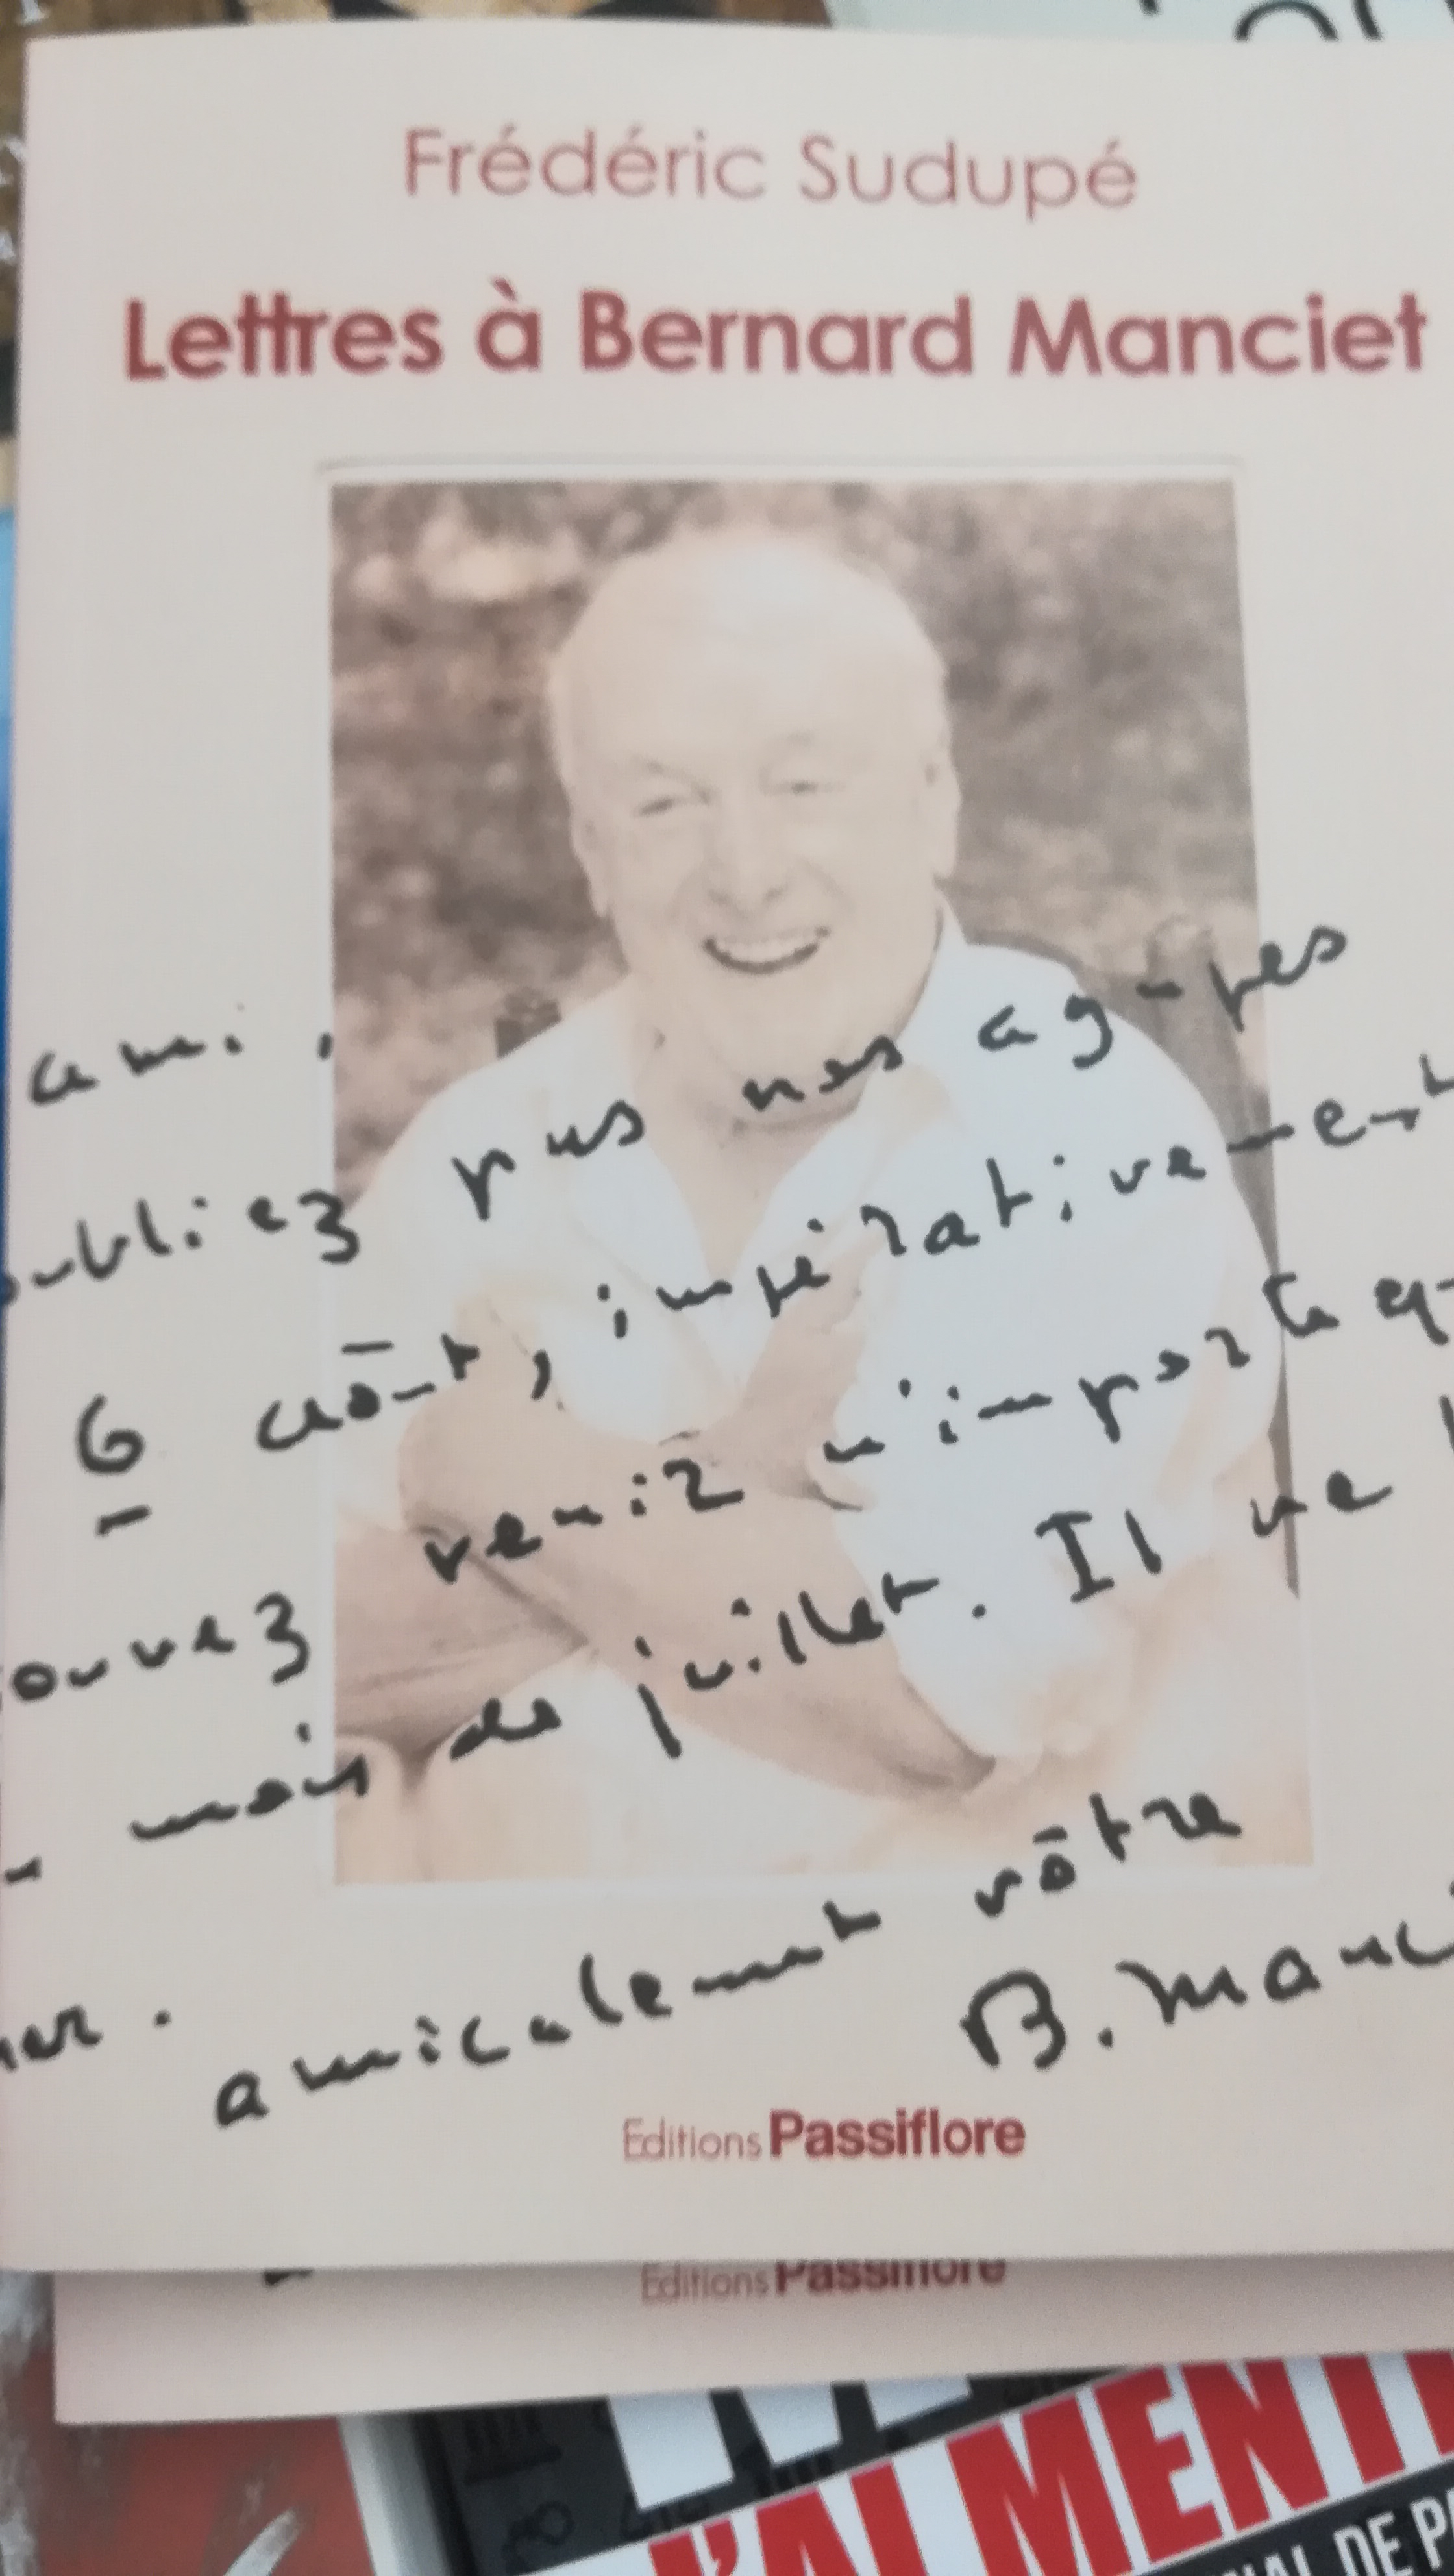 Frédéric Sudupé
Lettres à Bernard Manciet
ami,
oubliez pas nos agapes
6 août, impérativement
venir n'importe
mois de juillet. Il me
amicalement vôtre
B. Manci
Editions Passiflore
Editions Passiflore
J'AI MENTI
DE